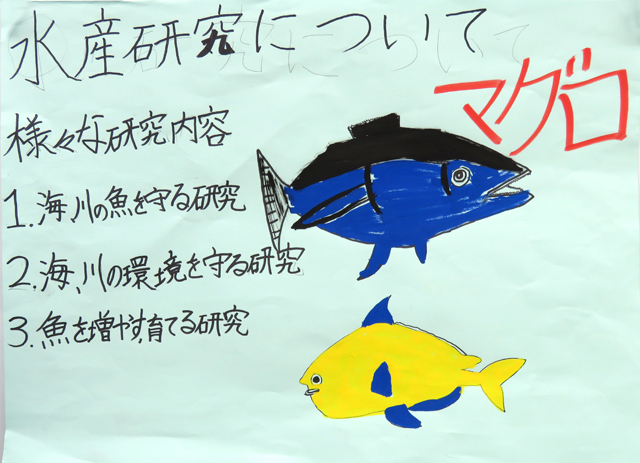 水産研究について
マグロ
様々な研究内容
1.海、川の魚を守る研究
2.海、川の環境を守る研究
3.魚を増やす,育てる研究